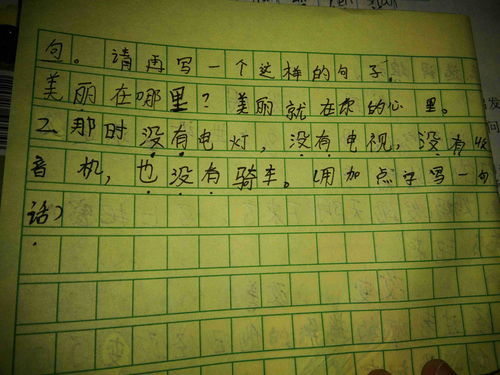 句。请再写一个这样的句子.
美丽在哪里？美丽就在你的心里。
2. 那时没有电灯，没有电视，没有收
音机，也没有骑车。(用加点字写一句
话)